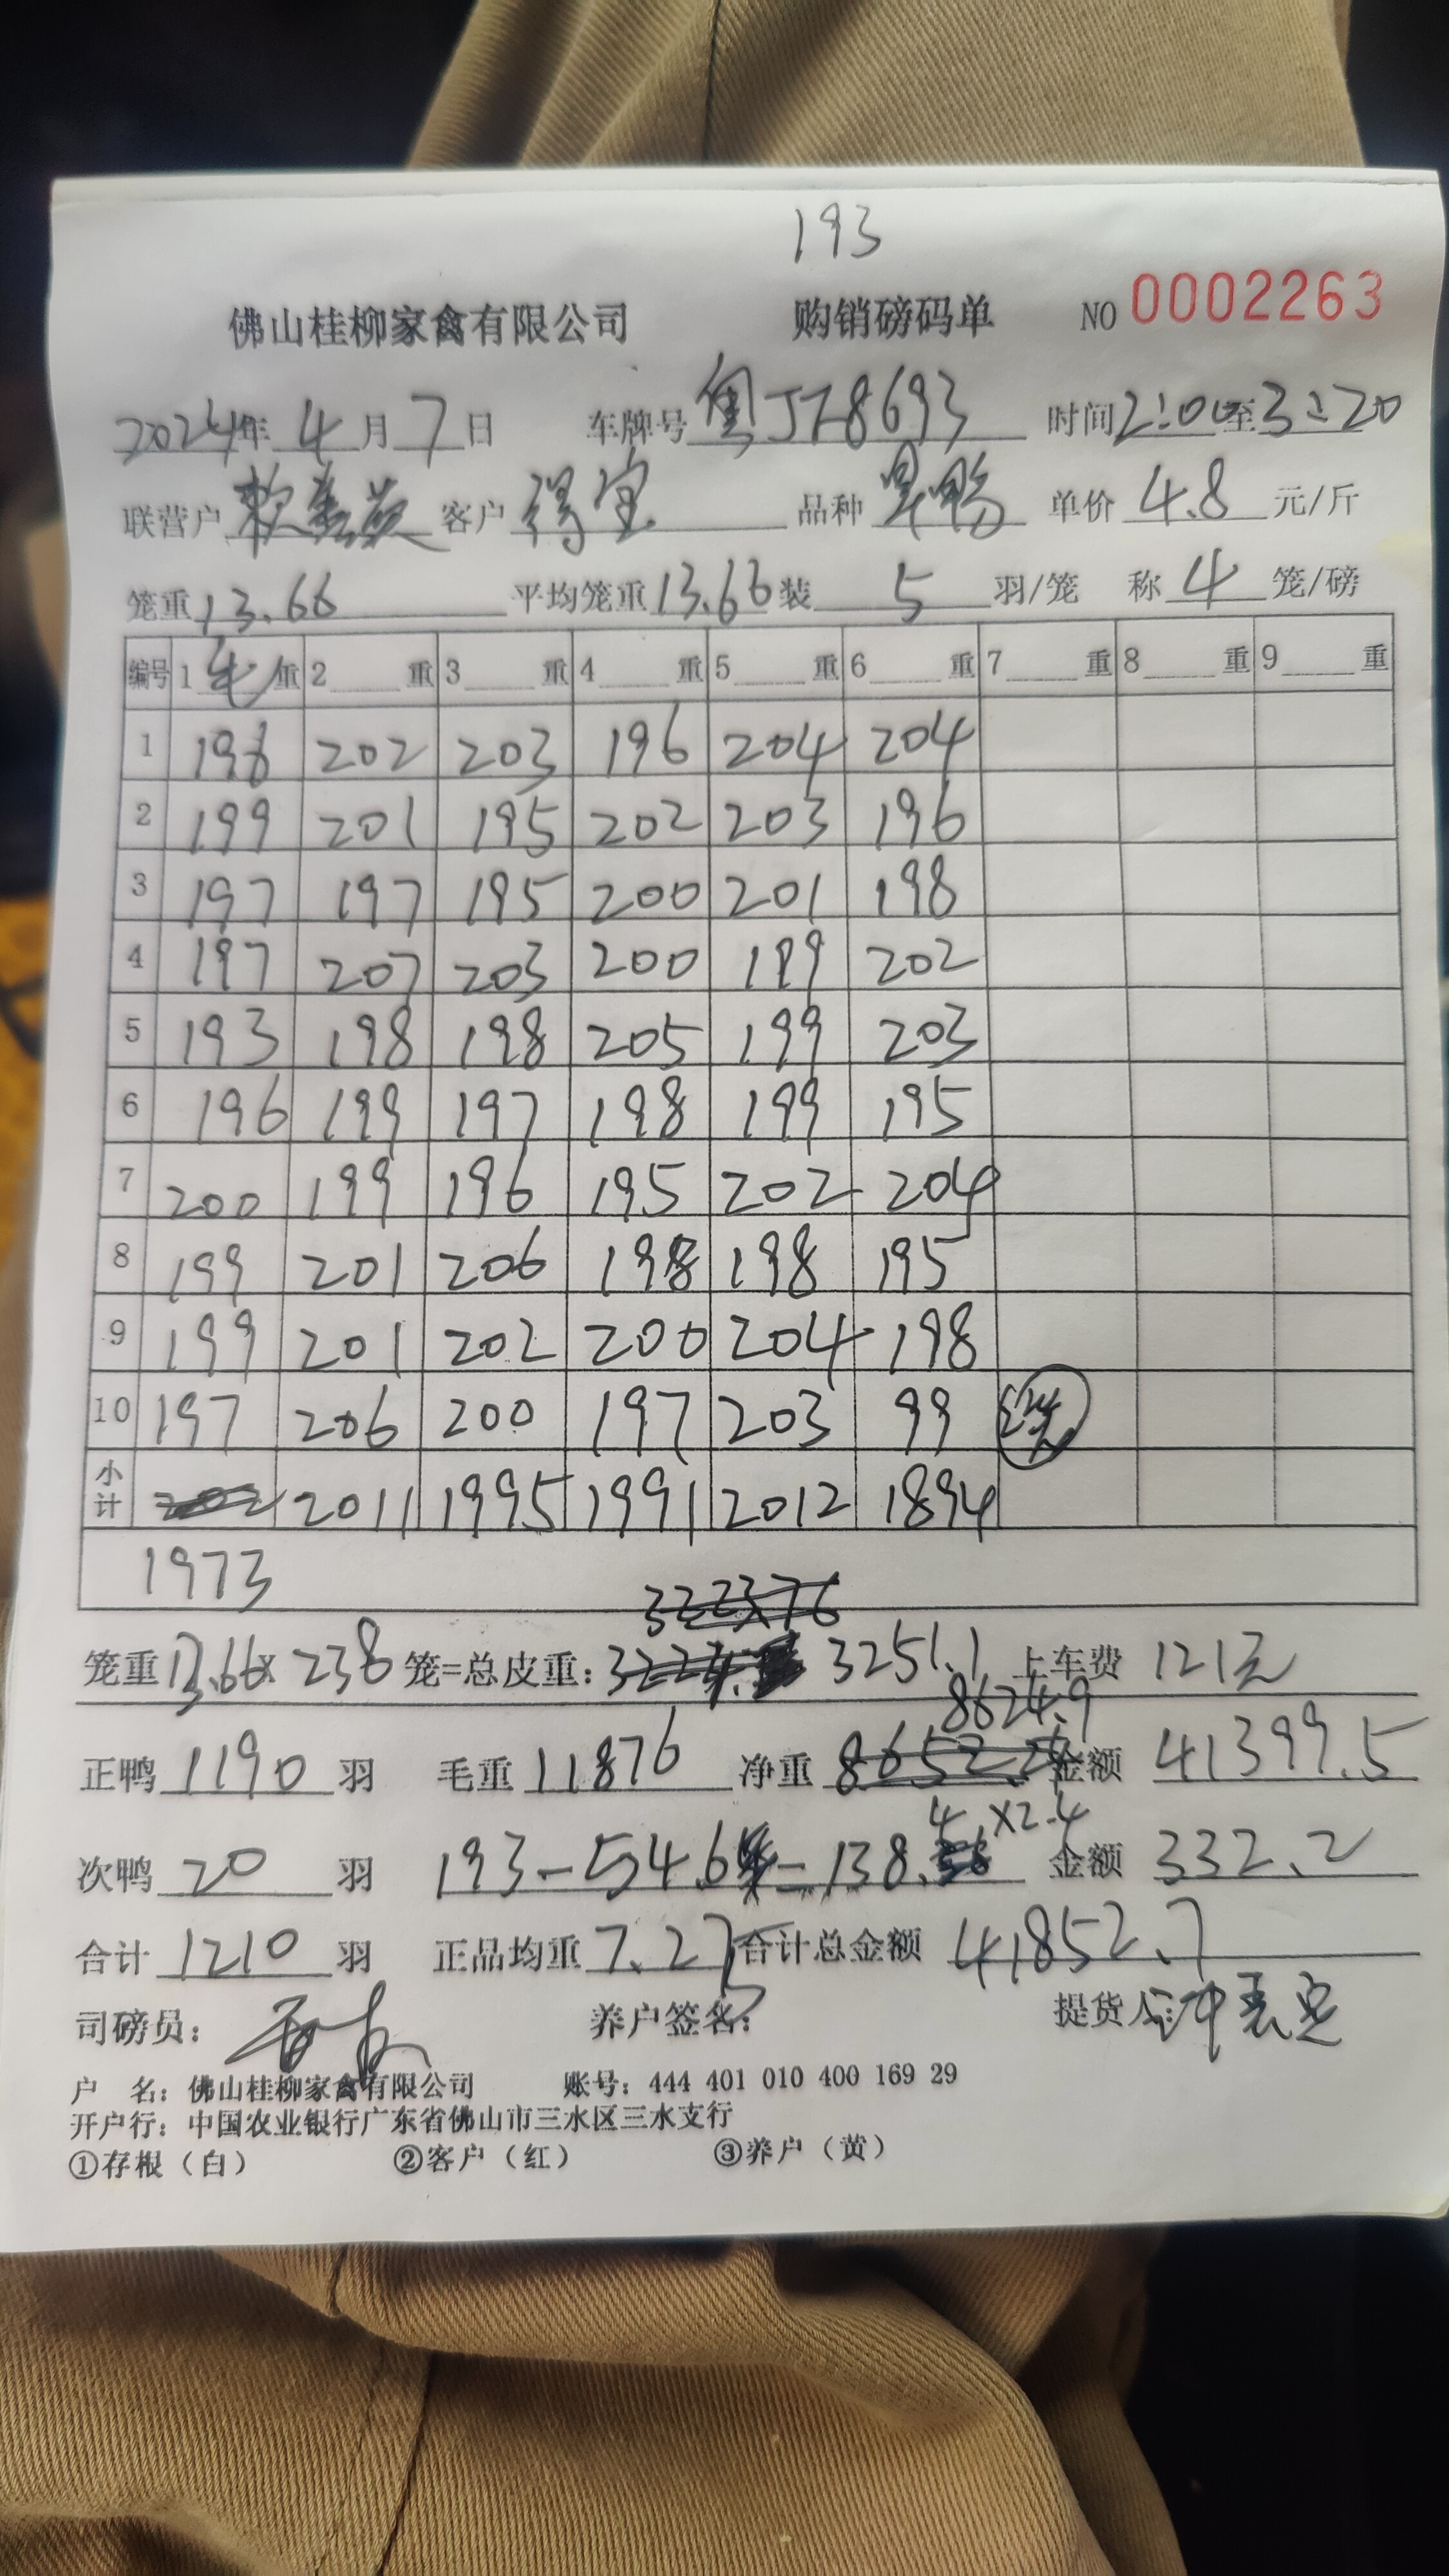 193
佛山桂柳家禽有限公司 购销磅码单 NO 0002263
2024年 4月 7日 车牌号 粤JZ8693 时间 2:00至3:20
联营户 客户 得宝 品种 旱鸭 单价 4.8 元/斤
笼重 13.66 平均笼重 13.66 装 5 羽/笼 称 4 笼/磅
编号 1 毛 重 2 重 3 重 4 重 5 重 6 重 7 重 8 重 9 重
1 196 202 203 196 204 204
2 199 201 195 202 203 196
3 197 197 195 200 201 198
4 197 207 203 200 199 202
5 193 198 198 205 199 203
6 196 199 197 198 199 195
7 200 199 196 195 202 204
8 199 201 206 198 198 195
9 199 201 202 200 204 198
10 197 206 200 197 203 99 2笼
小计 202 2011 1995 1991 2012 1894
1973
笼重 13.66x 238 笼=总皮重: 3251.1 上车费 121元
8624.9
正鸭 1190 羽 毛重 11876 净重 8652.24 金额 41399.5
次鸭 20 羽 193-54.6=138.4 x2.4 金额 332.2
合计 1210 羽 正品均重 7.25 合计总金额 41852.7
司磅员: 养户签名: 提货人:
户 名: 佛山桂柳家禽有限公司 账号: 444 401 010 400 169 29
开户行: 中国农业银行广东省佛山市三水区三水支行
①存根（白） ②客户（红） ③养户（黄）